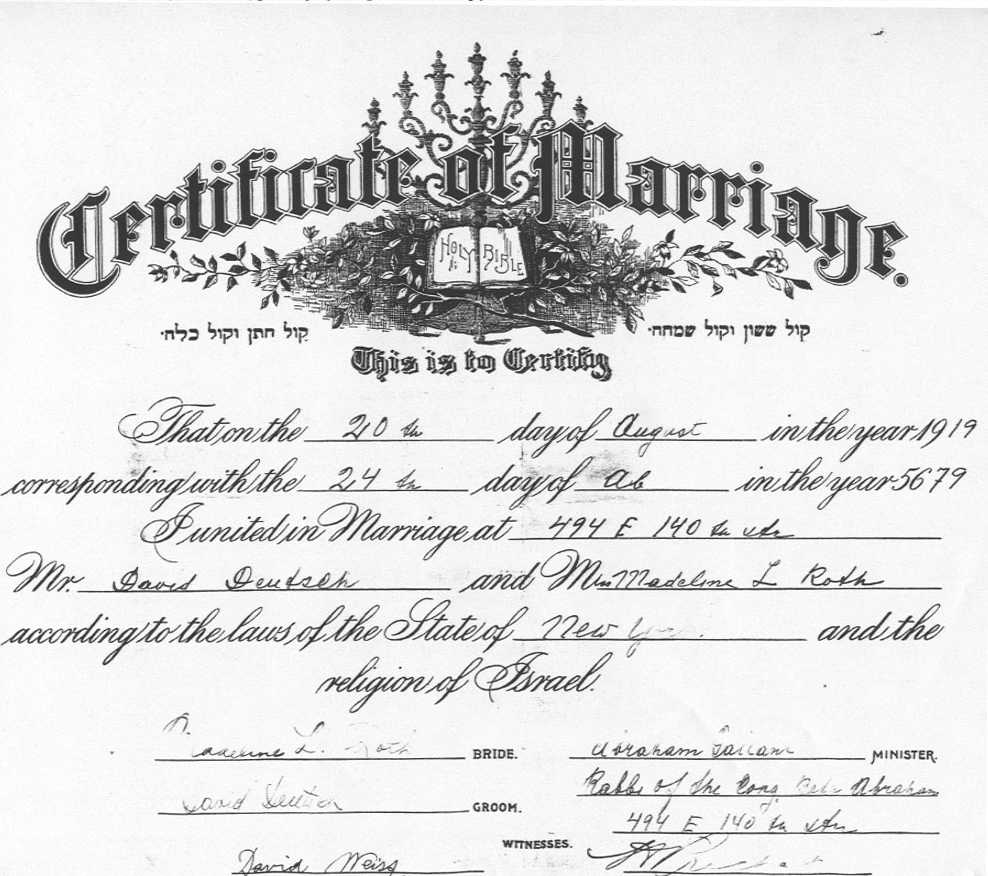 Certificate of Marriage.
HOLY BIBLE
קול ששון וקול שמחה· קול חתן וקול כלה·
This is to Certify
That on the 20 th day of August in the year 1919
corresponding with the 24 th day of Ab in the year 5679
I united in Marriage at 494 E 140 th str
Mr. David Deutsch and Miss Madeline L Roth
according to the laws of the State of New York and the
religion of Israel.
Madeline L. Roth BRIDE. Abraham MINISTER.
Rabbi of the Cong. Beth Abraham
David Deutsch GROOM.
494 E 140 th str
WITNESSES.
David Weiss